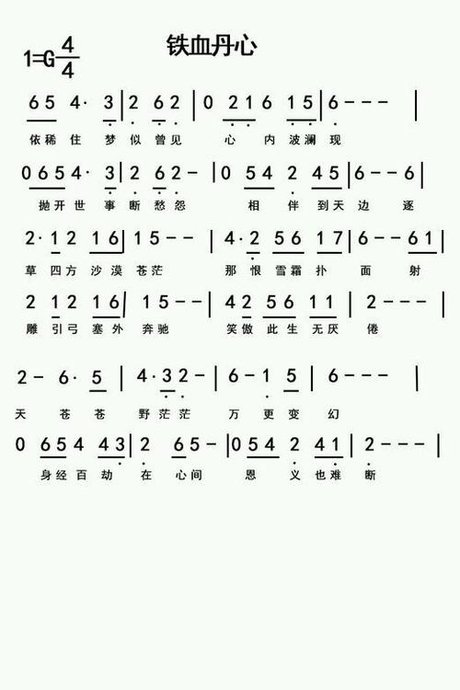 铁血丹心
1=G 4/4
6 5 4· 3 | 2 6 2 | 0 2 1 6 1 5 | 6 - - - |
依稀住梦似曾见 心内波澜现
0 6 5 4 · 3 | 2 6 2 - | 0 5 4 2 4 5 | 6 - - 6 |
抛开世事断愁怨 相伴到天边逐
2 · 1 2 1 6 | 1 5 - - | 4 · 2 5 6 1 7 | 6 - - 6 1 |
草四方沙漠苍茫 那恨雪霜扑面射
2 1 2 1 6 | 1 5 - - | 4 2 5 6 1 1 | 2 - - - |
雕引弓塞外奔驰 笑傲此生无厌倦
2 - 6 · 5 | 4 · 3 2 - | 6 - 1 5 | 6 - - - |
天苍苍野茫茫万更变幻
0 6 5 4 4 3 | 2 6 5 - | 0 5 4 2 4 1 | 2 - - - |
身经百劫在心间 恩义也难断